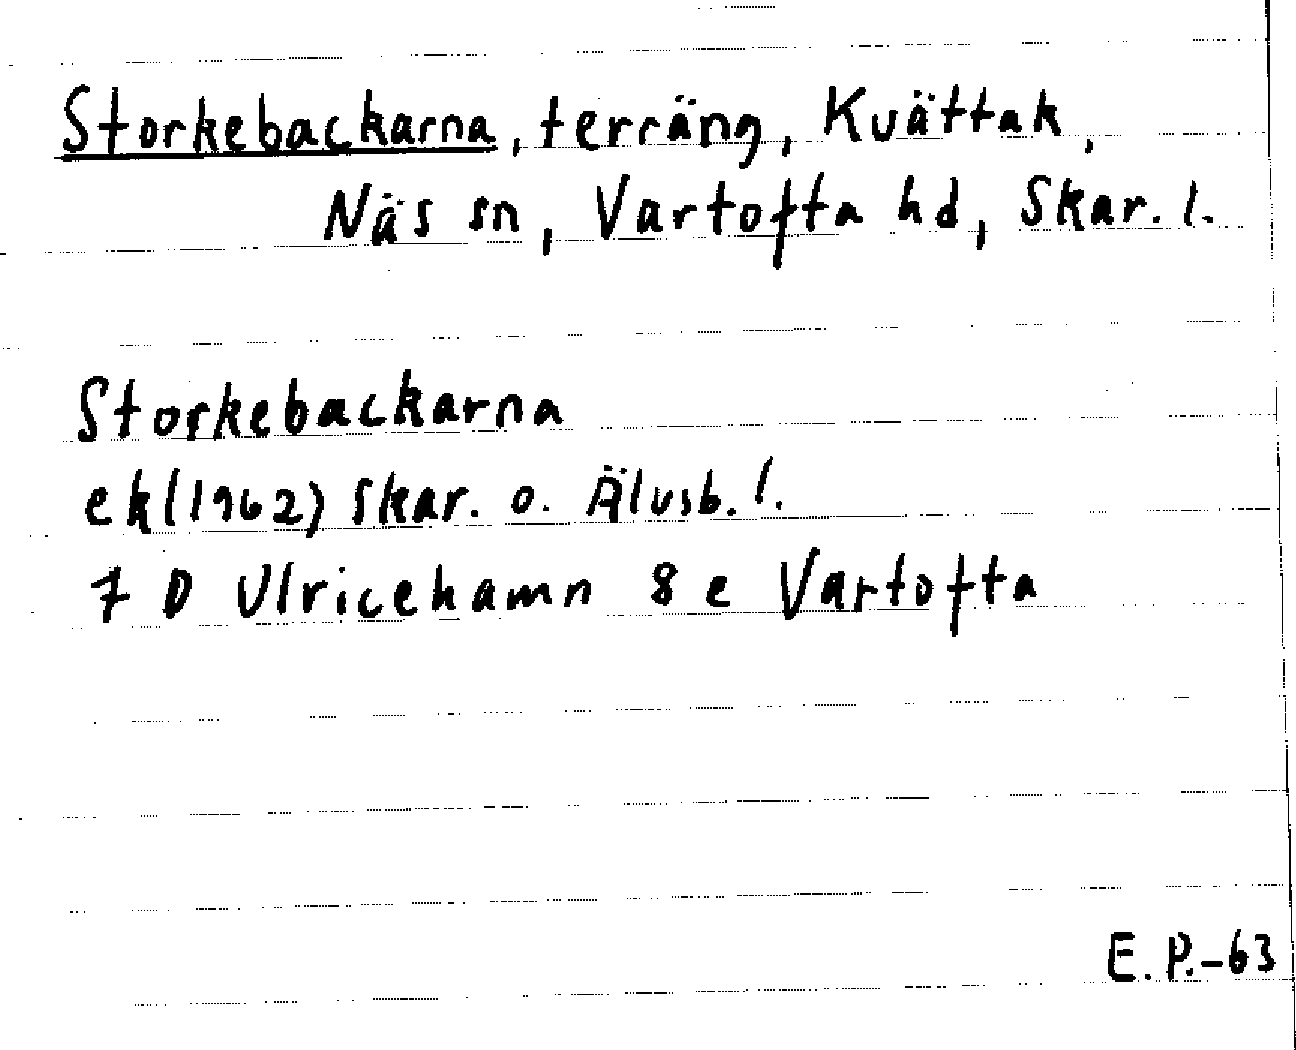 Storkebackarna, terräng, Kvättak,
Näs sn, Vartofta hd, Skar. l.
Storkebackarna
ek(1962) Skar. o. Älvsb. l.
7 D Ulricehamn 8 e Vartofta
E. P.-63